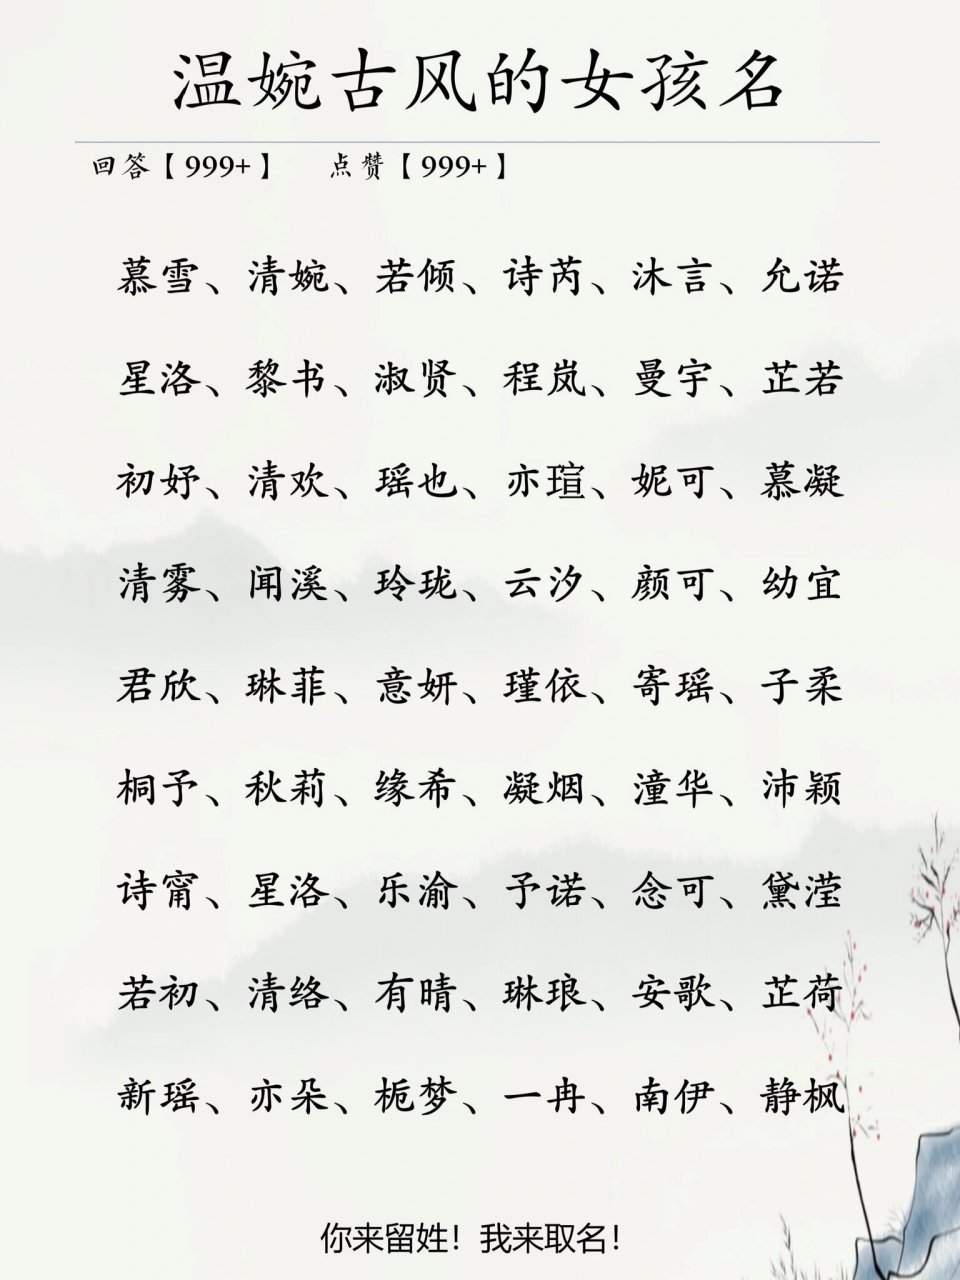 温婉古风的女孩名
回答【999+】 点赞【999+】
慕雪、清婉、若倾、诗芮、沐言、允诺
星洛、黎书、淑贤、程岚、曼宇、芷若
初妤、清欢、瑶也、亦瑄、妮可、慕凝
清雾、闻溪、玲珑、云汐、颜可、幼宜
君欣、琳菲、意妍、瑾依、寄瑶、子柔
桐予、秋莉、缘希、凝烟、潼华、沛颖
诗甯、星洛、乐渝、予诺、念可、黛滢
若初、清络、有晴、琳琅、安歌、芷荷
新瑶、亦朵、栀梦、一冉、南伊、静枫
你来留姓！我来取名！